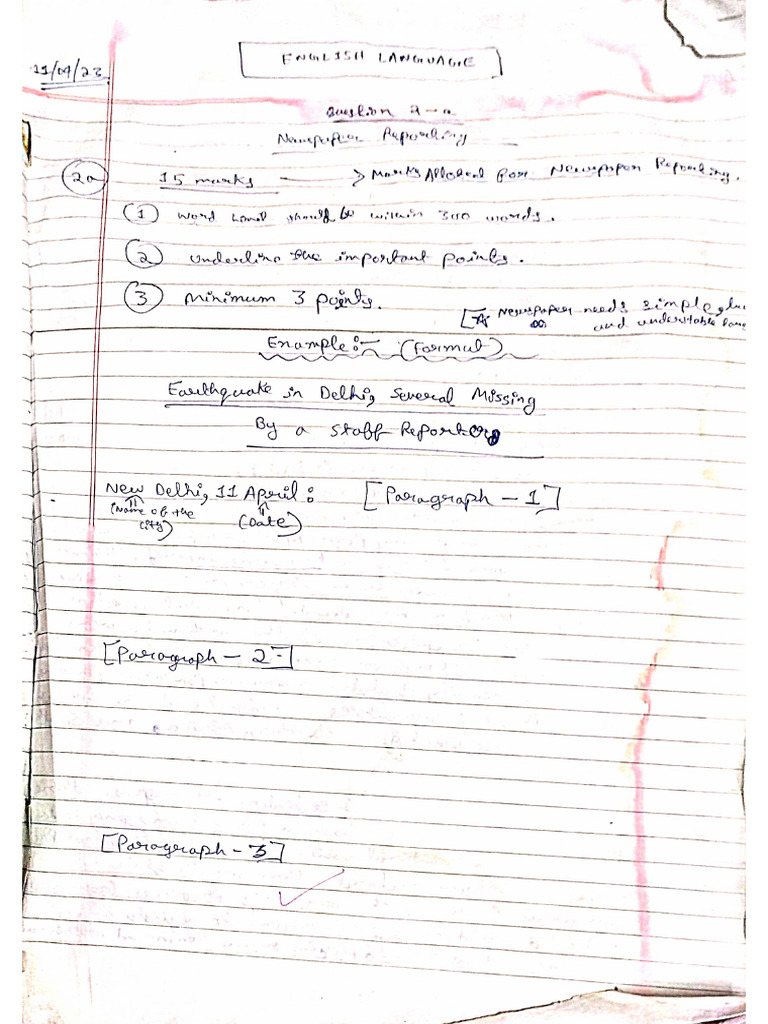 ENGLISH LANGUAGE
11/04/23
Question 2-a
Newspaper Reporting
2a 15 marks → Marks Alloted for Newspaper Reporting.
1 Word limit should be within 300 words.
2 Underline the important points.
3 Minimum 3 points.
[A Newspaper needs simple,
and
Example:- (Format)
Earthquake in Delhi, Several Missing
By a Staff Reporter
New Delhi, 11 April: [Paragraph - 1]
(Name of the
City)
(Date)
[Paragraph - 2]
[Paragraph - 3]